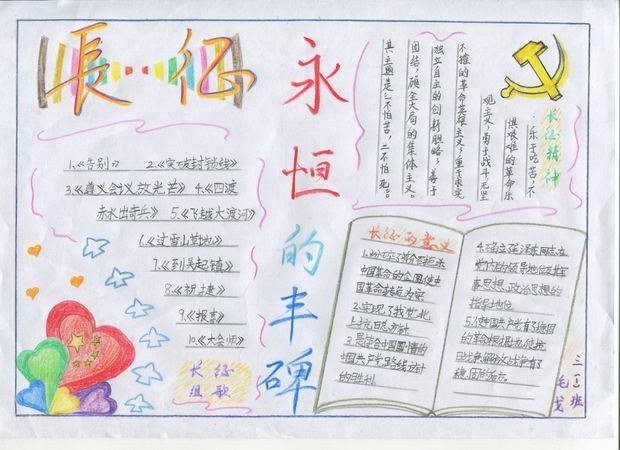 長征
永恒的丰碑
长征精神
乐于吃苦,不
惧艰难的革命乐
观主义;勇于战斗,无坚
不摧的革命英雄主义;重于求实,
独立自主的创新胆略;善于
团结,顾全大局的集体主义。
其主题是:一不怕苦,二不怕死。
1.《告别》 2.《突破封锁线》
3.《遵义会议放光芒》 4.《四渡
赤水出奇兵》 5.《飞越大渡河》
6.《过雪山草地》
7.《到吴起镇》
8.《祝捷》
9.《报喜》
10.《大会师》
长征
组歌
长征的意义
中国革命的企图,使中
国革命转危为安
2.实现了我党北
上抗日方针
3.是符合中国国情的
中国共产党路线方针
的胜利
4.确立了毛泽东同志在
党内的领导地位及其军
事思想、政治思想的
指导地位
5.使中国共产党有了稳固
的革命根据地,使抗
三(1)班
毛戈